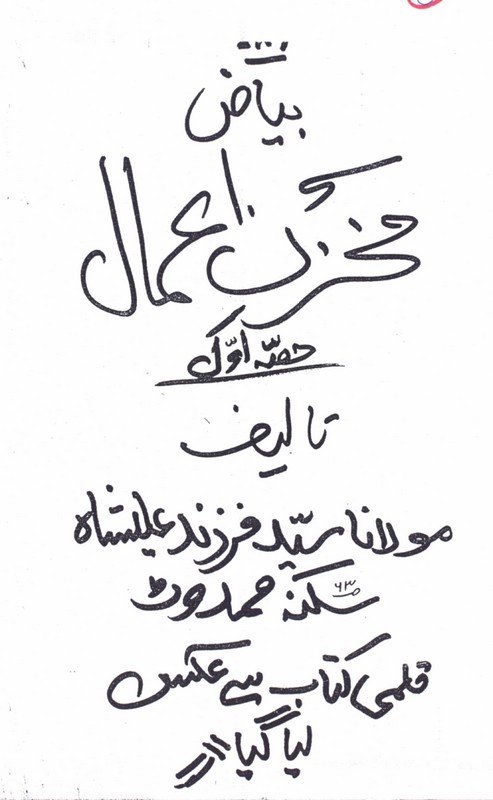 بیاض
مخزن اعمال
حصہ اوّل
تالیف
مولانا سیّد فرزند علیشاہ
سکنہ ممدوٹ
قلمی کتاب سے عکس
لیا گیا